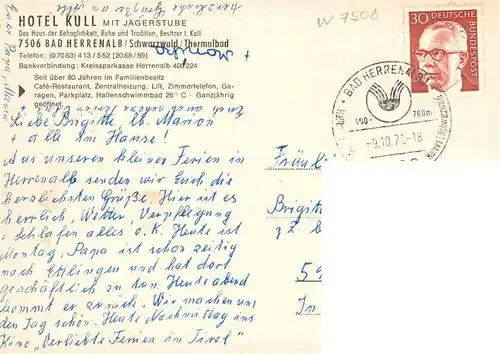 HOTEL KULL MIT JÄGERSTUBE
Das Haus der Behaglichkeit, Ruhe und Tradition, Besitzer I. Kull
7506 BAD HERRENALB / Schwarzwald / Thermalbad
Telefon: (07083) 413 / 552 [2088/89]
Bankverbindung: Kreissparkasse Herrenalb 400 224
Seit über 80 Jahren im Familienbesitz
Café-Restaurant, Zentralheizung, Lift, Zimmertelefon, Ga-
ragen, Parkplatz, Hallenschwimmbad 28° C - Ganzjährig
geöffnet.
Liebe Brigitte, lb. Marion
+ alle im Hause!
Aus unseren kleinen Ferien in
Herrenalb senden wir Euch die
herzlichsten Grüße. Hier ist es
herrlich, Wetter, Verpflegung
+ Schlafen alles o.K. Heute ist
Montag, Papa ist schon zeitig
nach Ettlingen und hat dort
geschäftlich zu tun. Heute abend
kommt er zurück. Wir machen uns
den Tag schön. Heute Nachmittag ins
Kino „Verliebte Ferien in Tirol"
Eure Papa Mama
W 7506
30 DEUTSCHE
BUNDESPOST
BAD HERRENALB
400-700m
-9.10.72-18
Fräul
Brigit
z.Z. b
59
In